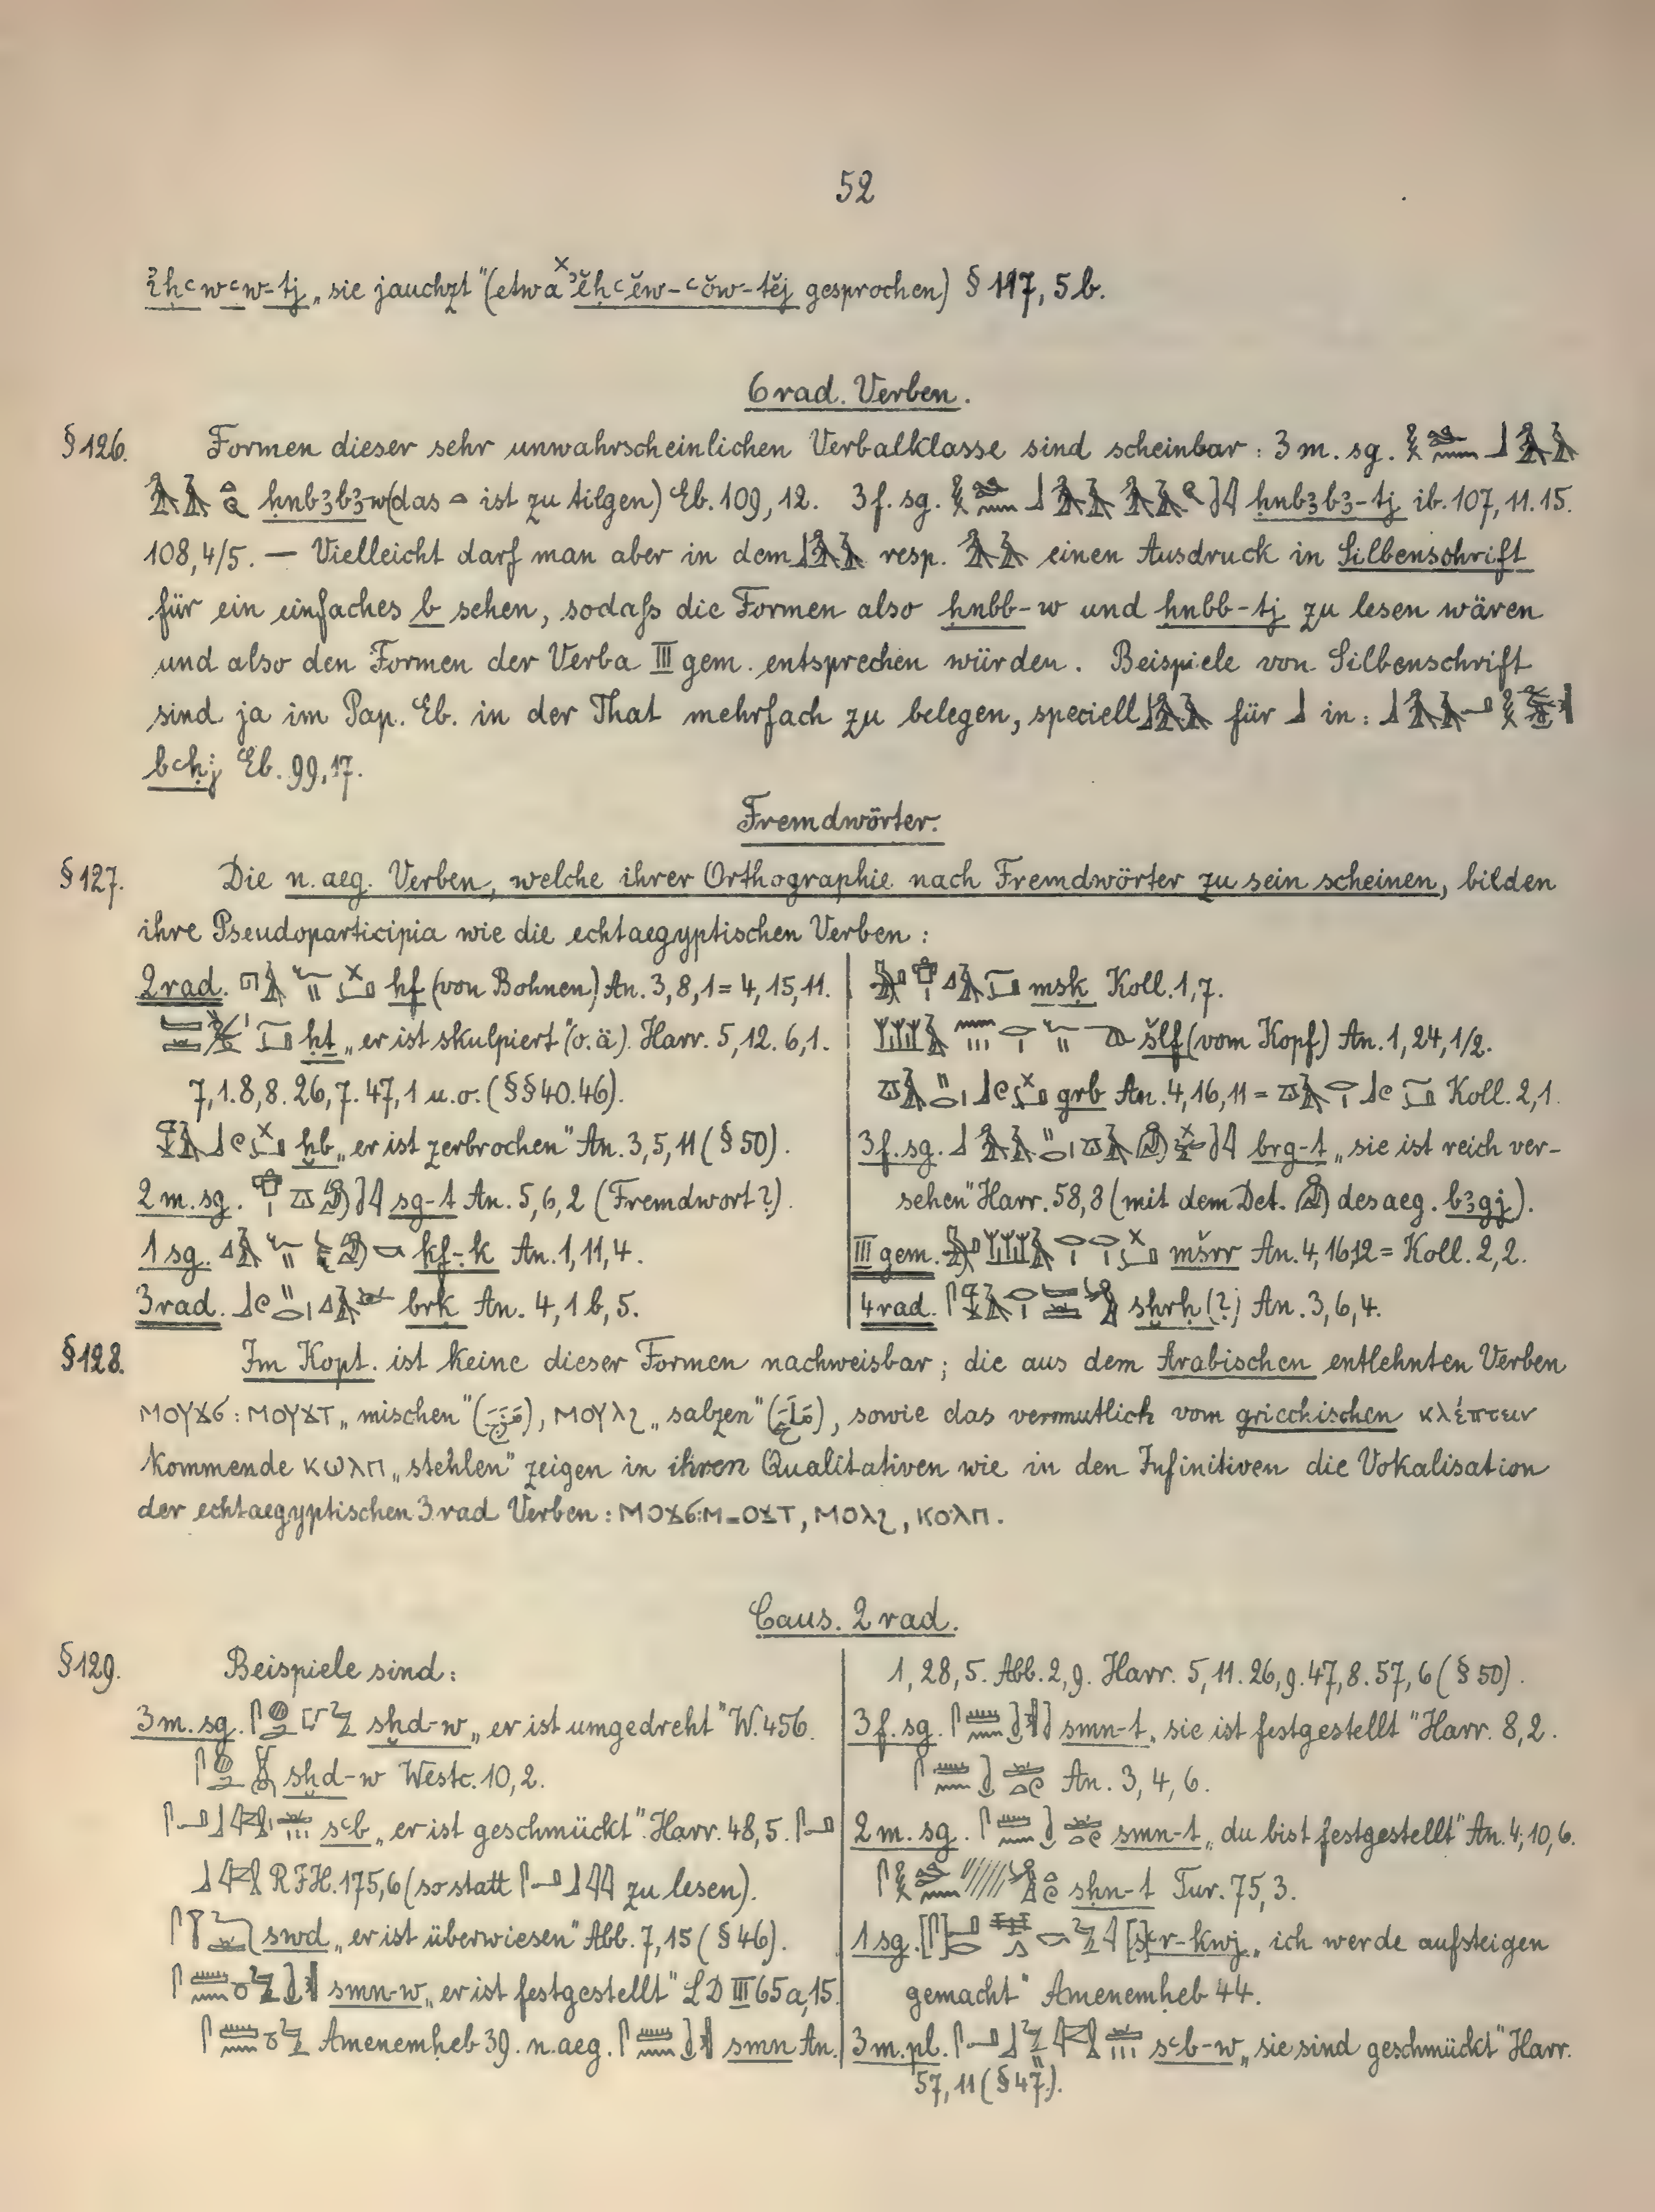 52
ꞽḥꜥwꜥw-tj „sie jauchzt" (etwa ˣʾĕḥꜥĕw-ꜥŏw-tĕj gesprochen) § 117, 5b.
6 rad. Verben.
§ 126. Formen dieser sehr unwahrscheinlichen Verbalklasse sind scheinbar: 3 m. sg.
ḥnbꜣbꜣ-w (das ist zu tilgen) Eb. 109, 12. 3 f. sg. ḥnbꜣbꜣ-tj ib. 107, 11. 15.
108, 4/5. — Vielleicht darf man aber in dem resp. einen Ausdruck in Silbenschrift
für ein einfaches b sehen, sodaß die Formen also ḥnbb-w und ḥnbb-tj zu lesen wären
und also den Formen der Verba III gem. entsprechen würden. Beispiele von Silbenschrift
sind ja im Pap. Eb. in der That mehrfach zu belegen, speciell für in:
bꜥḥj Eb. 99, 17.
Fremdwörter.
§ 127. Die n. aeg. Verben, welche ihrer Orthographie nach Fremdwörter zu sein scheinen, bilden
ihre Pseudoparticipia wie die echtaegyptischen Verben:
2 rad. hf (von Bohnen) An. 3, 8, 1 = 4, 15, 11.
ḥt „er ist skulpiert" (o. ä.) Harr. 5, 12. 6, 1.
7, 1. 8, 8. 26, 7. 47, 1 u. o. (§§ 40. 46).
ḫb „er ist zerbrochen" An. 3, 5, 11 (§ 50).
2 m. sg. sg-t An. 5, 6, 2 (Fremdwort?).
1 sg. ḳf-k An. 1, 11, 4.
3 rad. brḳ An. 4, 1 b, 5.
msḳ Koll. 1, 7.
šlf (vom Kopf) An. 1, 24, 1/2.
grb An. 4, 16, 11 = Koll. 2, 1.
3 f. sg. brg-t „sie ist reich ver-
sehen" Harr. 58, 8 (mit dem Det. des aeg. bꜣgj).
III gem. mšrr An. 4, 16, 12 = Koll. 2, 2.
4 rad. sḫrḥ (?) An. 3, 6, 4.
§ 128. Im Kopt. ist keine dieser Formen nachweisbar; die aus dem Arabischen entlehnten Verben
ⲙⲟⲩϫϭ : ⲙⲟⲩϫⲧ „mischen" (مَزَجَ), ⲙⲟⲩⲗϩ „salzen" (مَلَحَ), sowie das vermutlich vom griechischen κλέπτειν
kommende ⲕⲱⲗⲡ „stehlen" zeigen in ihren Qualitativen wie in den Infinitiven die Vokalisation
der echtaegyptischen 3 rad Verben: ⲙⲟϫϭ : ⲙⲟϫⲧ, ⲙⲟⲗϩ, ⲕⲟⲗⲡ.
Caus. 2 rad.
§ 129. Beispiele sind:
3 m. sg. sḫd-w „er ist umgedreht" W. 456.
sḫd-w Westc. 10, 2.
sꜥb „er ist geschmückt" Harr. 48, 5.
RIH. 175, 6 (so statt zu lesen).
swd „er ist überwiesen" Abb. 7, 15 (§ 46).
smn-w „er ist festgestellt" LD III 65 a, 15.
Amenemḥeb 39. n. aeg. smn An.
1, 28, 5. Abb. 2, 9. Harr. 5, 11. 26, 9. 47, 8. 57, 6 (§ 50).
3 f. sg. smn-t „sie ist festgestellt" Harr. 8, 2.
An. 3, 4, 6.
2 m. sg. smn-t „du bist festgestellt" An. 4, 10, 6.
sḥn-t Tur. 75, 3.
1 sg. [s]ꜥr-kwj „ich werde aufsteigen
gemacht" Amenemḥeb 44.
3 m. pl. sꜥb-w „sie sind geschmückt" Harr.
57, 11 (§ 47).